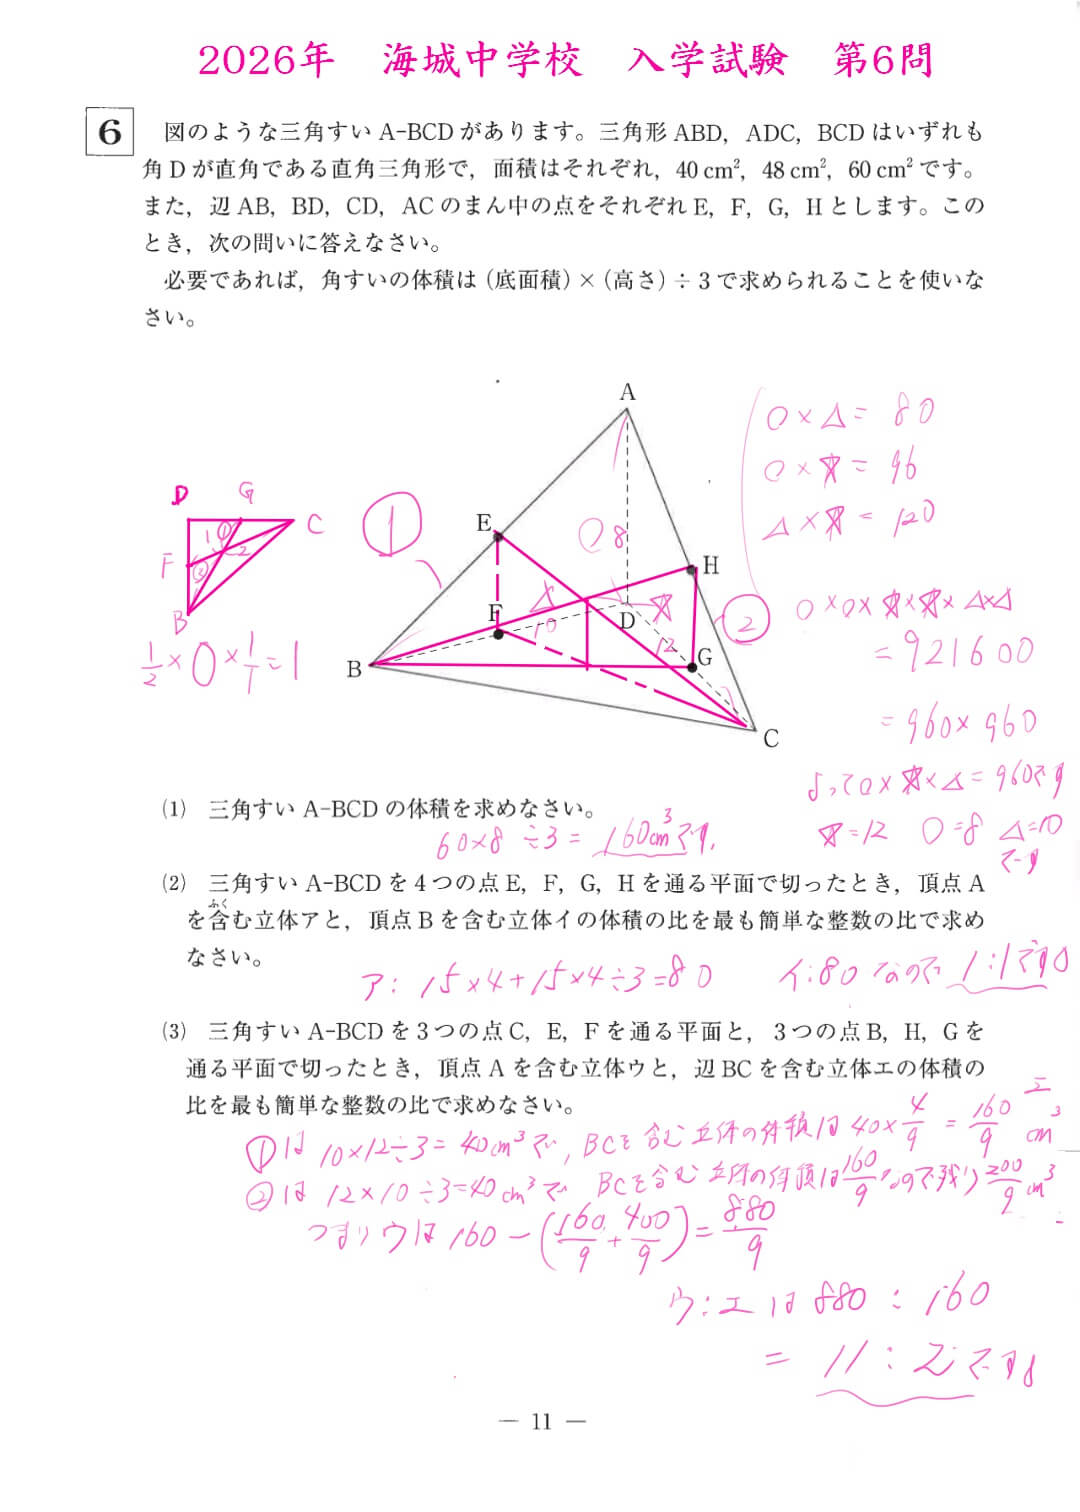 2026年 海城中学校 入学試験 第6問
6 図のような三角すい A-BCD があります。三角形 ABD, ADC, BCD はいずれも
角 D が直角である直角三角形で, 面積はそれぞれ, 40 cm², 48 cm², 60 cm² です。
また, 辺 AB, BD, CD, AC のまん中の点をそれぞれ E, F, G, H とします。この
とき, 次の問いに答えなさい。
必要であれば, 角すいの体積は (底面積) × (高さ) ÷ 3 で求められることを使いな
さい。
A
E
H
F
D
B
G
C
① ②
○8
△ 10
☆ 12
D G C
F
B
1/2 × ○ × 1/1 = 1
○ × △ = 80
○ × ☆ = 96
△ × ☆ = 120
○×○×☆×☆×△×△
= 921600
= 960 × 960
よって○×☆×△ = 960です
☆=12 ○=8 △=10
です
(1) 三角すい A-BCD の体積を求めなさい。
60×8÷3 = 160cm³です。
(2) 三角すい A-BCD を 4 つの点 E, F, G, H を通る平面で切ったとき, 頂点 A
ふく
を含む立体アと, 頂点 B を含む立体イの体積の比を最も簡単な整数の比で求め
なさい。
ア: 15×4+15×4÷3=80 イ:80 なので 1:1です。
(3) 三角すい A-BCD を 3 つの点 C, E, F を通る平面と, 3 つの点 B, H, G を
通る平面で切ったとき, 頂点 A を含む立体ウと, 辺 BC を含む立体エの体積の
比を最も簡単な整数の比で求めなさい。
①は 10×12÷3=40cm³で, BCを含む立体の体積は 40×4/9 = 160/9 cm³ エ
②は 12×10÷3=40cm³で BCを含む立体の体積は 160/9 なので残り 200/9 cm³
つまりウは 160-(160/9+400/9)=880/9
ウ:エは 880:160
= 11:2です。
— 11 —